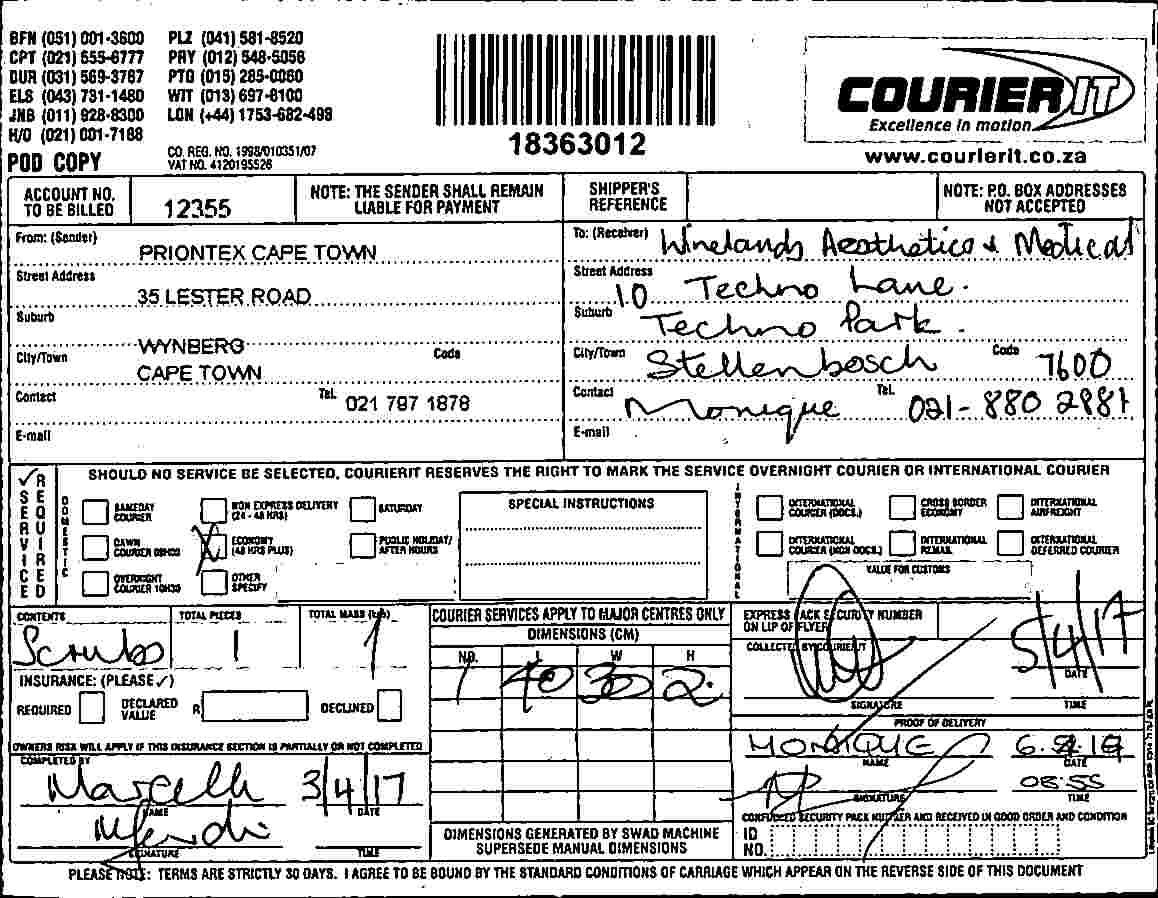 BFN (051) 001-3600 PLZ (041) 581-8520
CPT (021) 555-6777 PRY (012) 548-5056
DUR (031) 569-3767 PTG (015) 285-0060
ELS (043) 731-1480 WIT (013) 697-8100
JNB (011) 928-8300 LON (+44) 1753-682-498
H/O (021) 001-7168
POD COPY
CO. REG. NO. 1998/010351/07
VAT NO. 4120195526
18363012
COURIERIT
Excellence in motion
www.courierit.co.za
ACCOUNT NO. TO BE BILLED 12355
NOTE: THE SENDER SHALL REMAIN LIABLE FOR PAYMENT
SHIPPER'S REFERENCE
NOTE: P.O. BOX ADDRESSES NOT ACCEPTED
From: (Sender) PRIONTEX CAPE TOWN
Street Address 35 LESTER ROAD
Suburb WYNBERG
City/Town CAPE TOWN Code
Contact Tel. 021 797 1878
E-mail
To: (Receiver) Winelands Aesthetics & Medical
Street Address 10 Techno Lane.
Suburb Techno Park.
City/Town Stellenbosch Code 7600
Contact Monique Tel. 021-880 2981
E-mail
SERVICE REQUIRED
SHOULD NO SERVICE BE SELECTED, COURIERIT RESERVES THE RIGHT TO MARK THE SERVICE OVERNIGHT COURIER OR INTERNATIONAL COURIER
DOMESTIC
SAMEDAY COURIER
NON EXPRESS DELIVERY (24 - 48 HRS)
SATURDAY
DAWN COURIER 09H00
ECONOMY (48 HRS PLUS)
PUBLIC HOLIDAY/ AFTER HOURS
OVERNIGHT COURIER 10H30
OTHER SPECIFY
SPECIAL INSTRUCTIONS
INTERNATIONAL
INTERNATIONAL COURIER (DOCS.)
CROSS BORDER ECONOMY
INTERNATIONAL AIRFREIGHT
INTERNATIONAL COURIER (NON DOCS.)
INTERNATIONAL REMAIL
INTERNATIONAL DEFERRED COURIER
VALUE FOR CUSTOMS
CONTENTS Scrubs
TOTAL PIECES 1
TOTAL MASS (kgs) 1
INSURANCE: (PLEASE ✓)
REQUIRED DECLARED VALUE R DECLINED
OWNERS RISK WILL APPLY IF THIS INSURANCE SECTION IS PARTIALLY OR NOT COMPLETED
COMPLETED BY
3/4/17
NAME DATE
SIGNATURE TIME
COURIER SERVICES APPLY TO MAJOR CENTRES ONLY
DIMENSIONS (CM)
NO. L W H
1 40 30 2
DIMENSIONS GENERATED BY SWAD MACHINE SUPERSEDE MANUAL DIMENSIONS
EXPRESS PACK SECURITY NUMBER ON LIP OF FLYER
COLLECTED BY COURIERIT
5/4/17
DATE
SIGNATURE TIME
PROOF OF DELIVERY
MONIQUE
NAME DATE
08:55
SIGNATURE TIME
SECURITY PACK NUMBER AND RECEIVED IN GOOD ORDER AND CONDITION
ID NO.
PLEASE NOTE: TERMS ARE STRICTLY 30 DAYS. I AGREE TO BE BOUND BY THE STANDARD CONDITIONS OF CARRIAGE WHICH APPEAR ON THE REVERSE SIDE OF THIS DOCUMENT